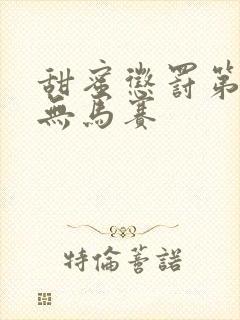 甜蜜懲罰第
無馬賽
特倫蓍諾